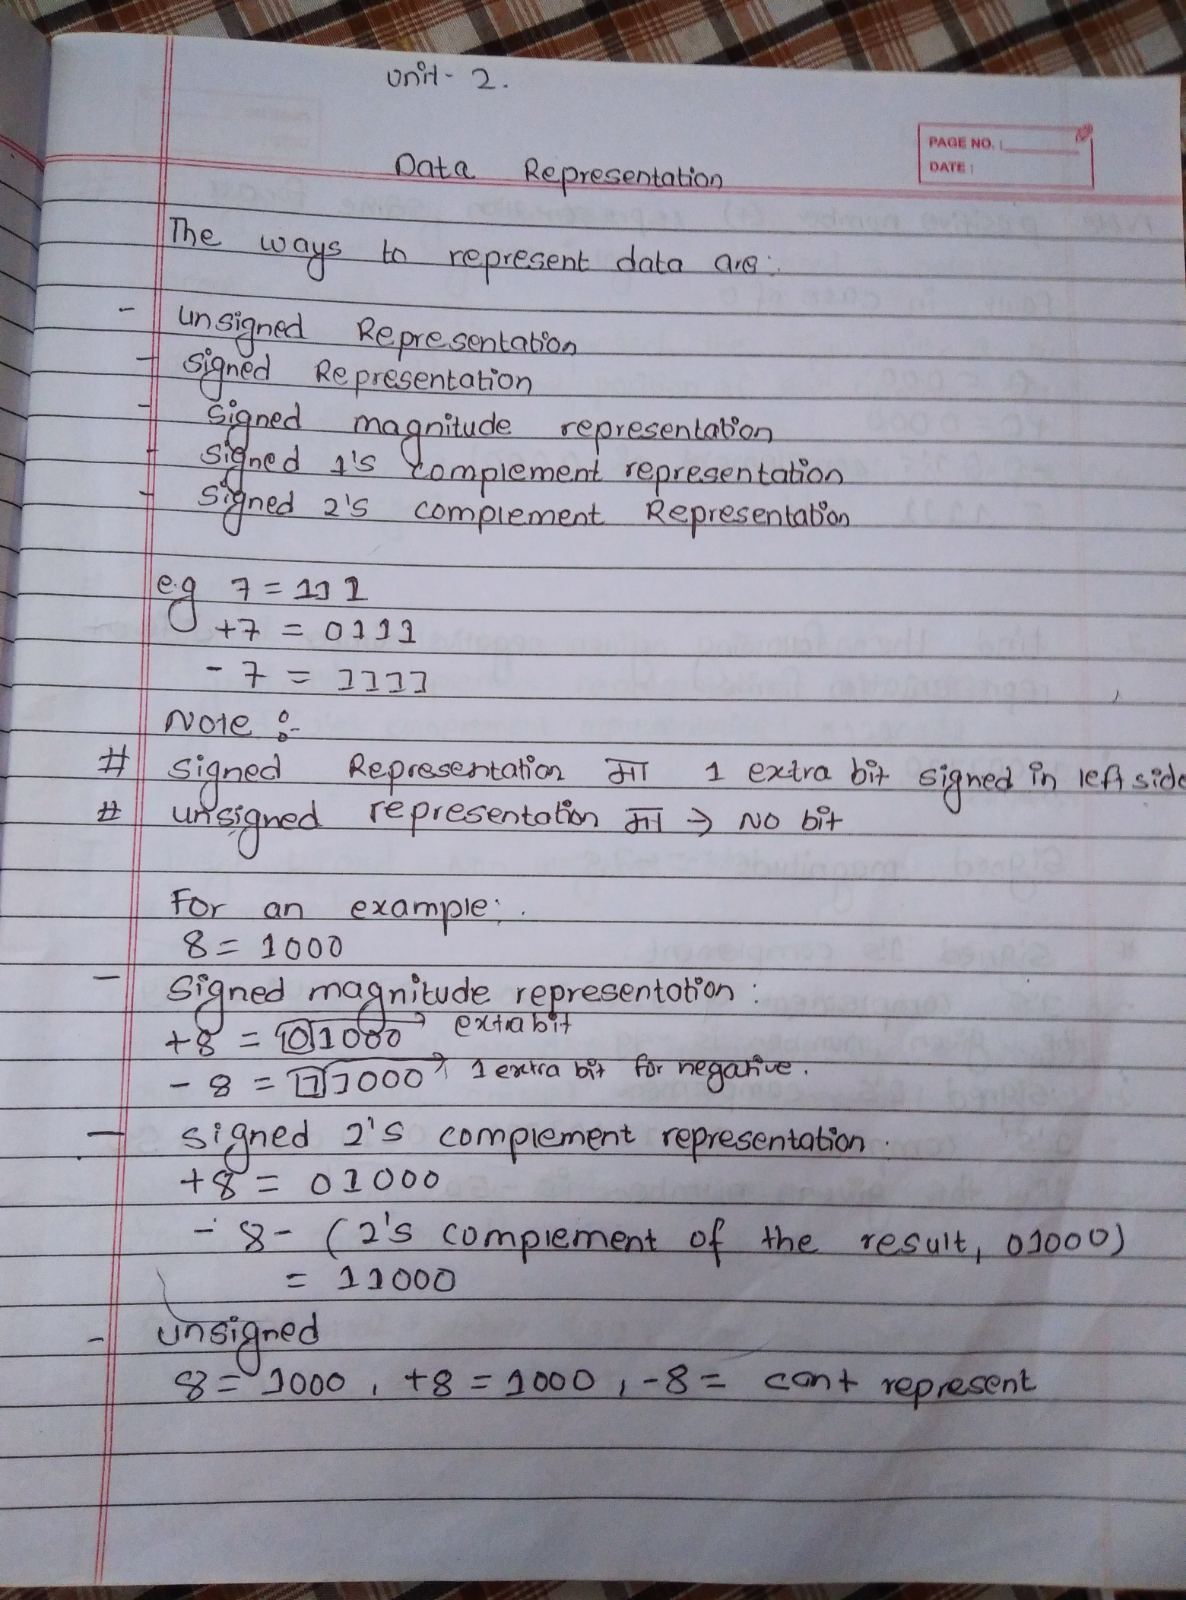 Unit- 2.
PAGE NO. :
DATE :
Data Representation
The ways to represent data are:
- unsigned Representation
- signed Representation
- signed magnitude representation
- signed 1's complement representation
- signed 2's complement Representation
e.g 7 = 111
+7 = 0111
- 7 = 1111
Note :-
# signed Representation मा 1 extra bit signed in left side
# unsigned representation मा → No bit
For an example:
8 = 1000
- signed magnitude representation :
+8 = 01000 → extra bit
- 8 = 11000 → 1 extra bit for negative.
- signed 2's complement representation.
+8 = 01000
- 8 - (2's complement of the result, 01000)
= 11000
- unsigned
8 = 1000, +8 = 1000, -8 = cant represent